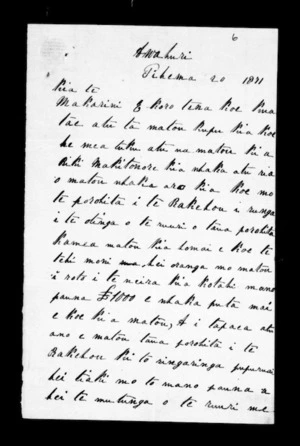 6
Awahuri
Tihema 20 1871
Kia te
Makarini E koro tena koe kua
tae atu ta matou kupu kia koe
he mea tuku atu na matou ki a
Riki Makitonore kia whaka atu ia
o matou whaka aro kia koe mo
te porohita i te Rakehou i runga
i te otinga o te ruuri o taua porohita
Kamea matou kia homai e koe te
tahi moni hei oranga mo matou
i roto i te neira kia kotahi mano
pauna £1000 e whaka puta mai
e koe ki a matou, A i tapaea atu
ano e matou taua porohita i te
Rakehou ki to ringaringa pupuru ai
hei tiaki mo to mano pauna a
hei te mutunga o te ruuri me